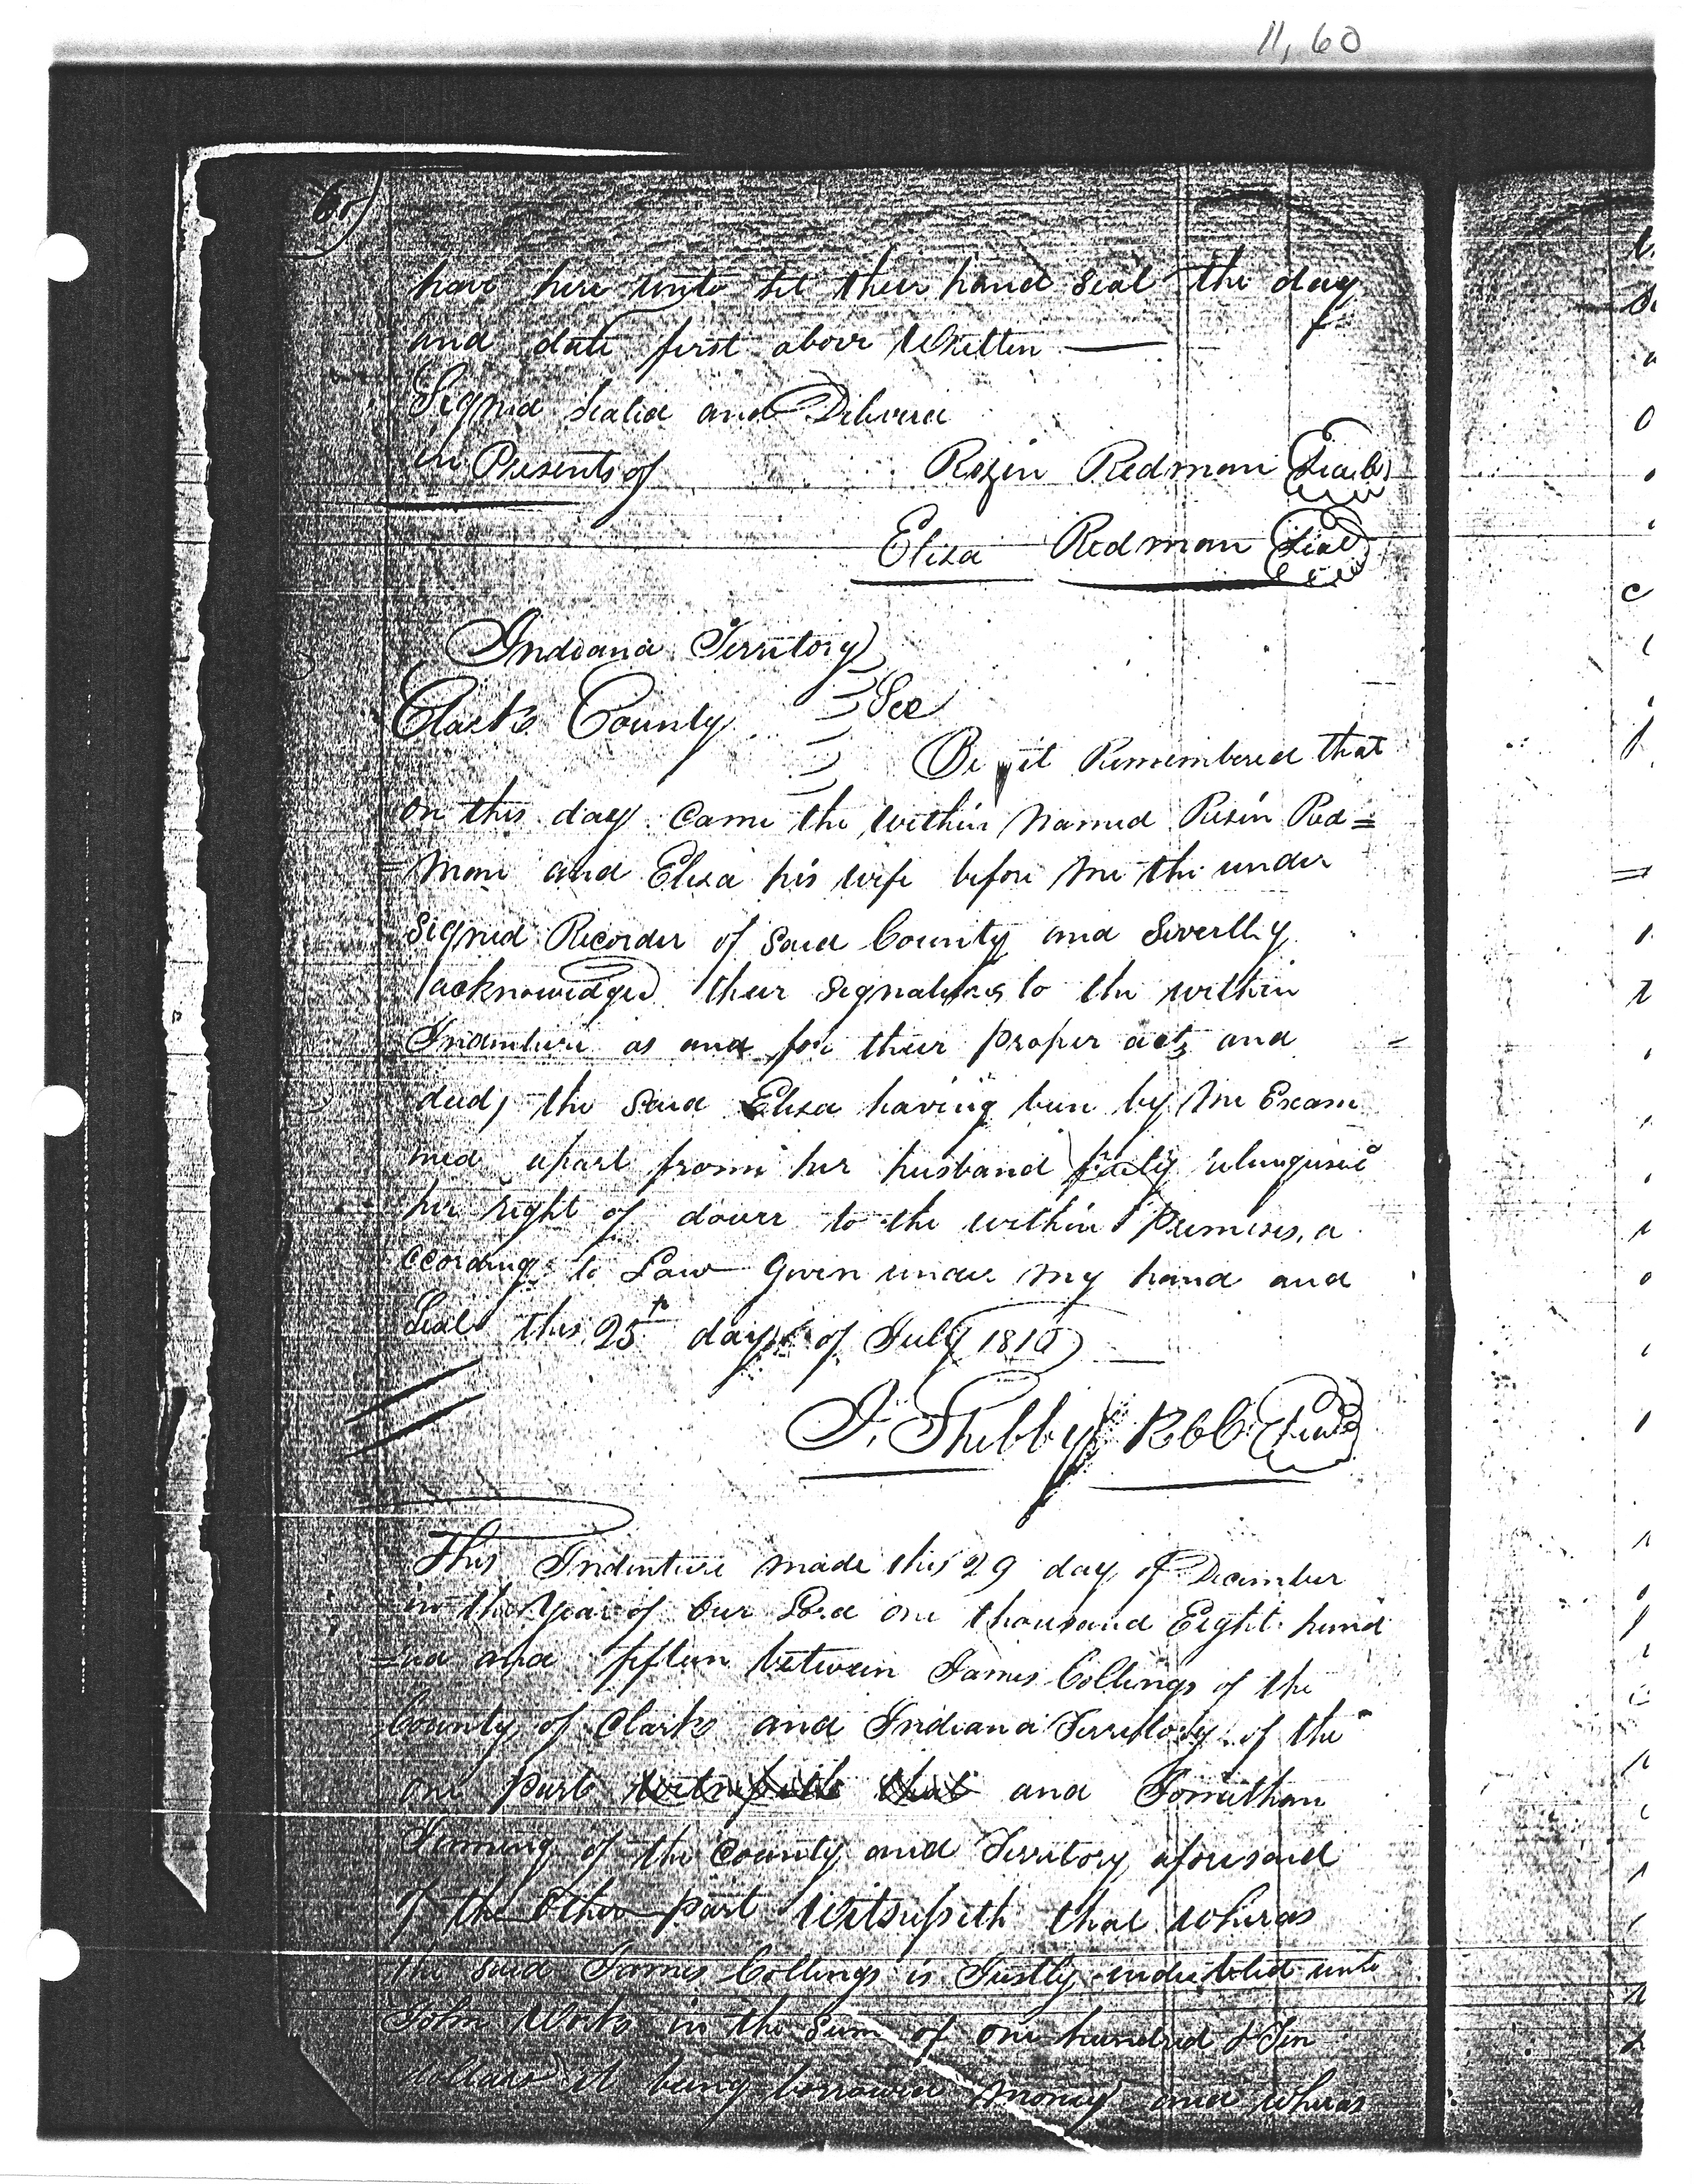 11, 60
60
have here unto set their hand seal the day
and date first above Written
Signed Sealed and Delivered
in Presents of Rezin Redman Seal
Eliza Redman Seal
Indiana Territory
Clark County Sce
Be it Remembered that
on this day Came the within Named Rezin Red=
=man and Eliza his wife before me the under
Signed Recorder of Said County and Severlly
acknowledged their Signatures to the within
Indenture as and for their proper act, and
deed, the Said Eliza having been by me Exam
ined apart from her husband relinquised
her right of dower to the within Premises, a
ccording to Law Given under my hand and
Seal this 25th day of July 1816
I. Shelby RCC Seal
This Indenture made this 29 day of December
in the Year of Our Lord one thousand Eight hund
=red and fifteen between James Collings of the
County of Clark and Indiana Territory of the
one part and Jonathan
Jenning of the County and Territory aforesaid
of the Other part Witsnesseth that wheras
the said James Collings is Justly indebted unto
John Work in the Sum of one hundred & Ten
dollars it being borrowed money and wheras